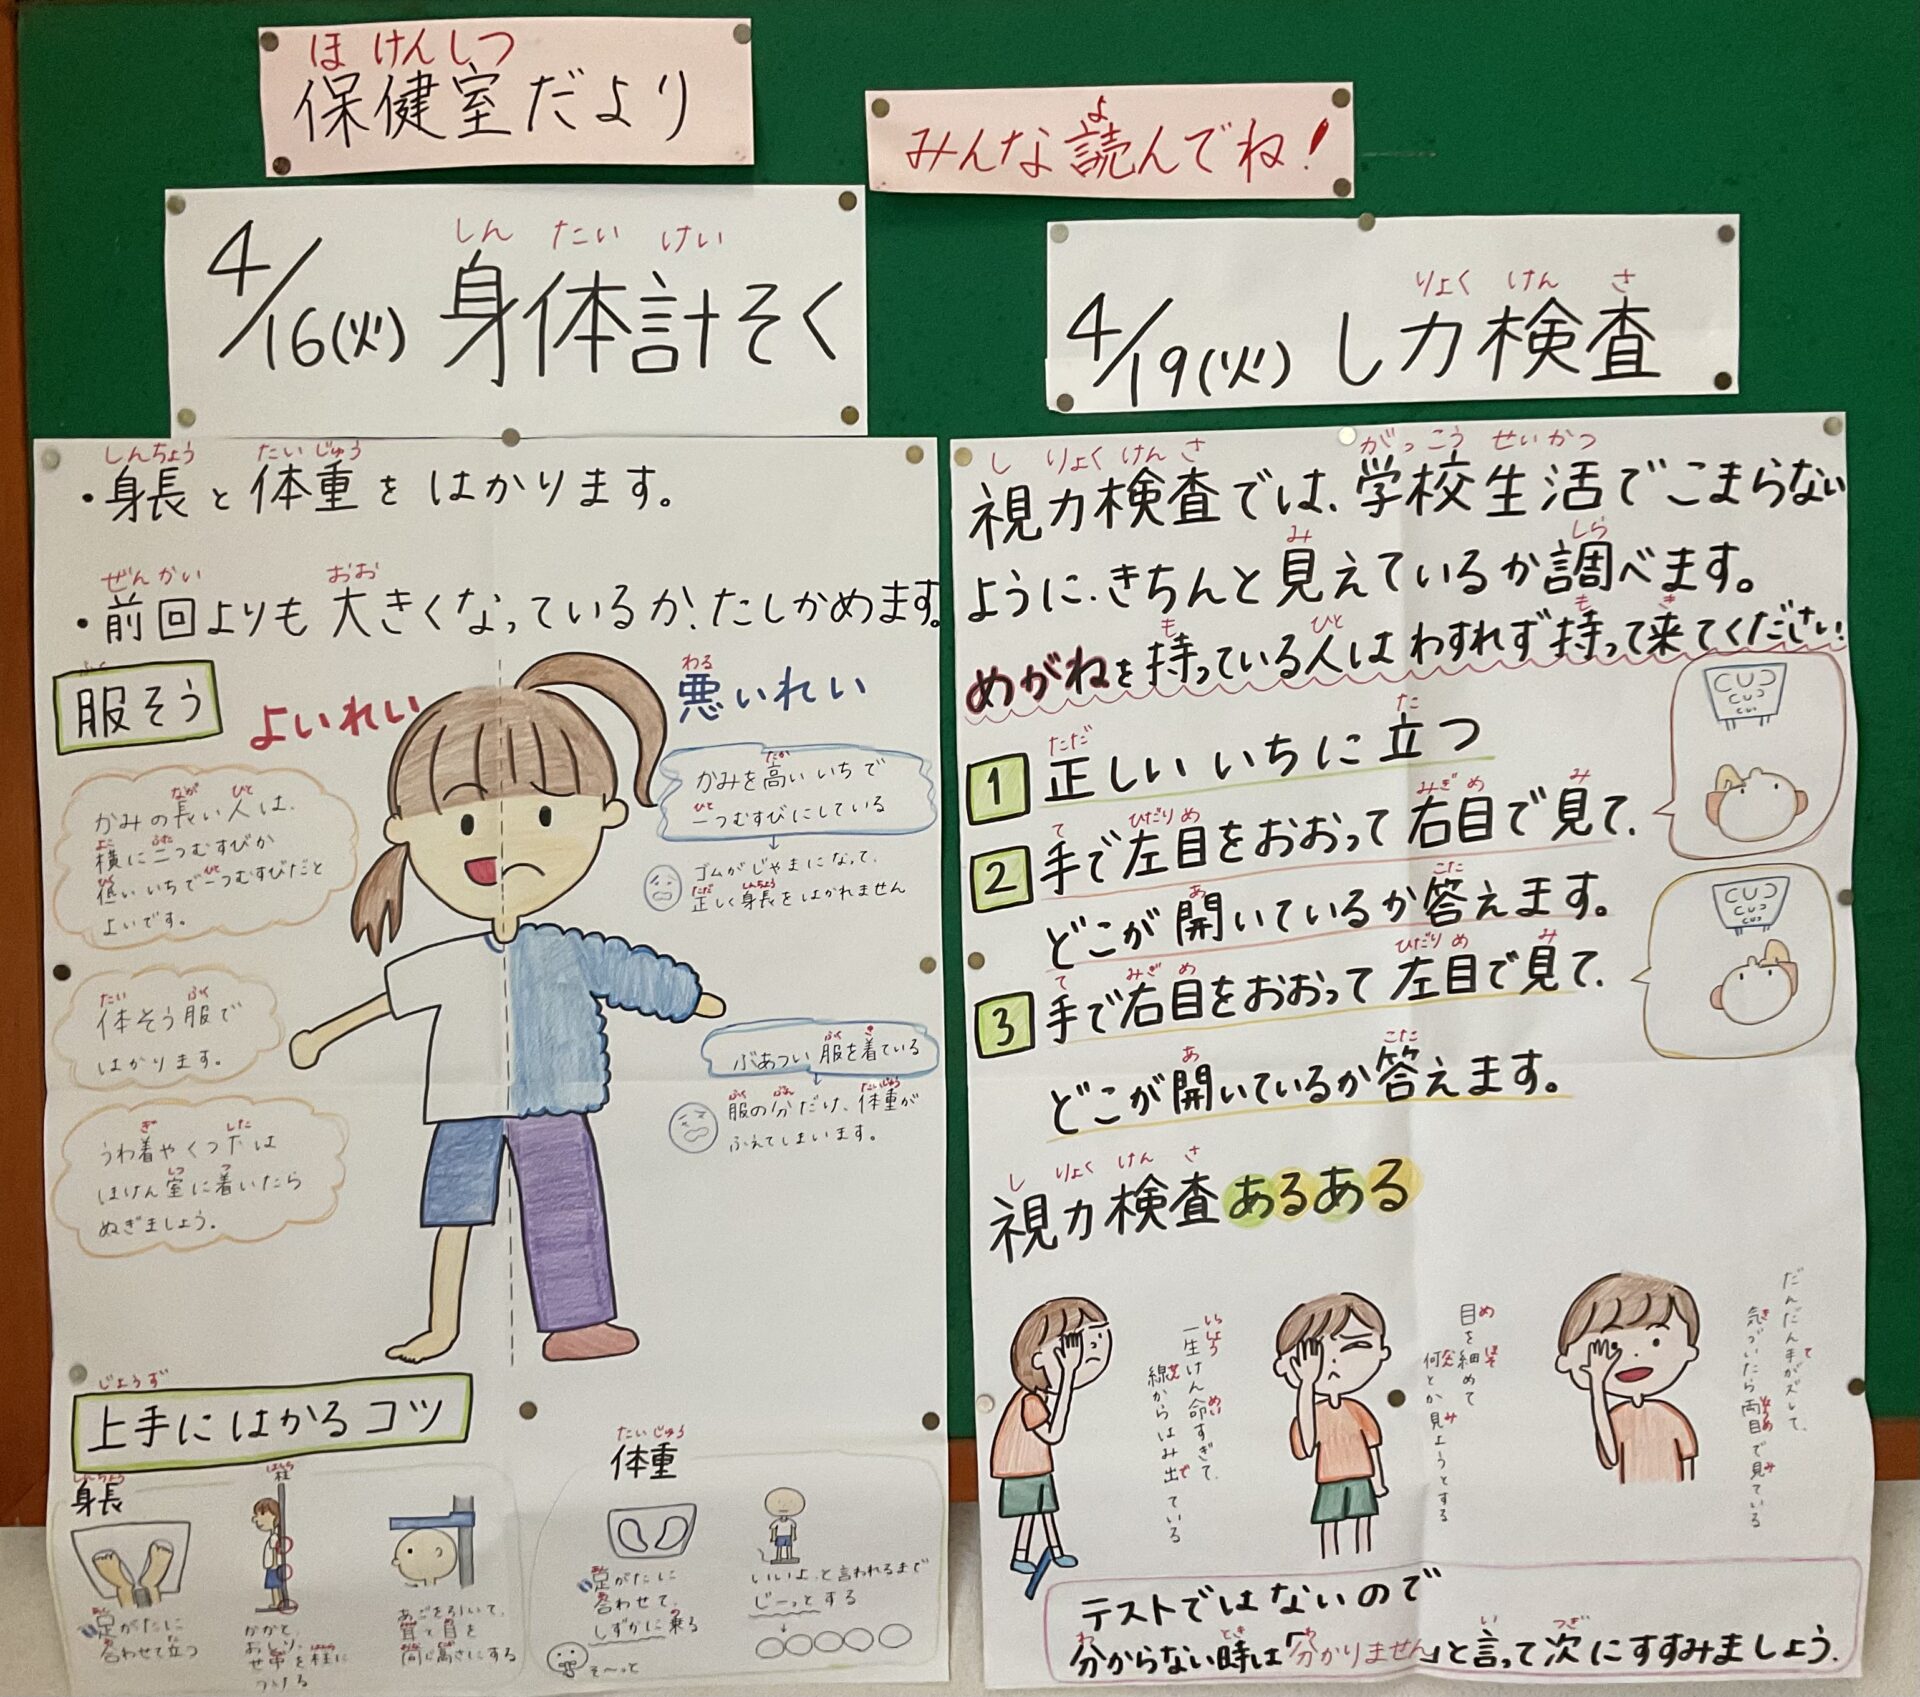 保健室だより
みんな読んでね!
4/16(火) 身体計そく
・身長と体重をはかります。
・前回よりも大きくなっているか、たしかめます。
服そう
よいれい
悪いれい
かみの長い人は、
横に二つむすびか
低いいちで一つむすびだと
よいです。
体そう服で
はかります。
うわ着やくつ下は
ほけん室に着いたら
ぬぎましょう。
かみを高いいちで
一つむすびにしている
ゴムがじゃまになって、
正しく身長をはかれません
ぶあつい服を着ている
服の分だけ、体重が
ふえてしまいます。
上手にはかるコツ
身長
足がたに
合わせて立つ
柱
かかと、
おしり、
せ中を柱に
つける
あごを引いて、
耳と目を
同じ高さにする
体重
足がたに
合わせて、
しずかに乗る
そ〜っと
いいよ、と言われるまで
じーっとする
4/19(火) し力検査
視力検査では、学校生活でこまらない
ように、きちんと見えているか調べます。
めがねを持っている人はわすれず持って来てください。
1 正しいいちに立つ
2 手で左目をおおって右目で見て、
どこが開いているか答えます。
3 手で右目をおおって左目で見て、
どこが開いているか答えます。
視力検査あるある
一生けん命すぎて、
線からはみ出ている
目を細めて
何とか見ようとする
だんだん手がズレて、
気づいたら両目で見ている
テストではないので
分からない時は「分かりません」と言って次にすすみましょう。